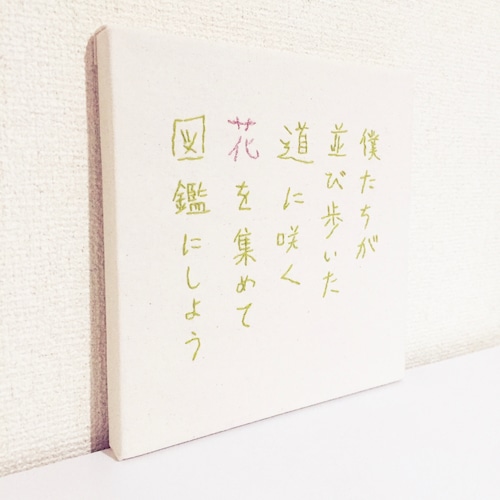 僕たちが
並び歩いた
道に咲く
花を集めて
図鑑にしよう